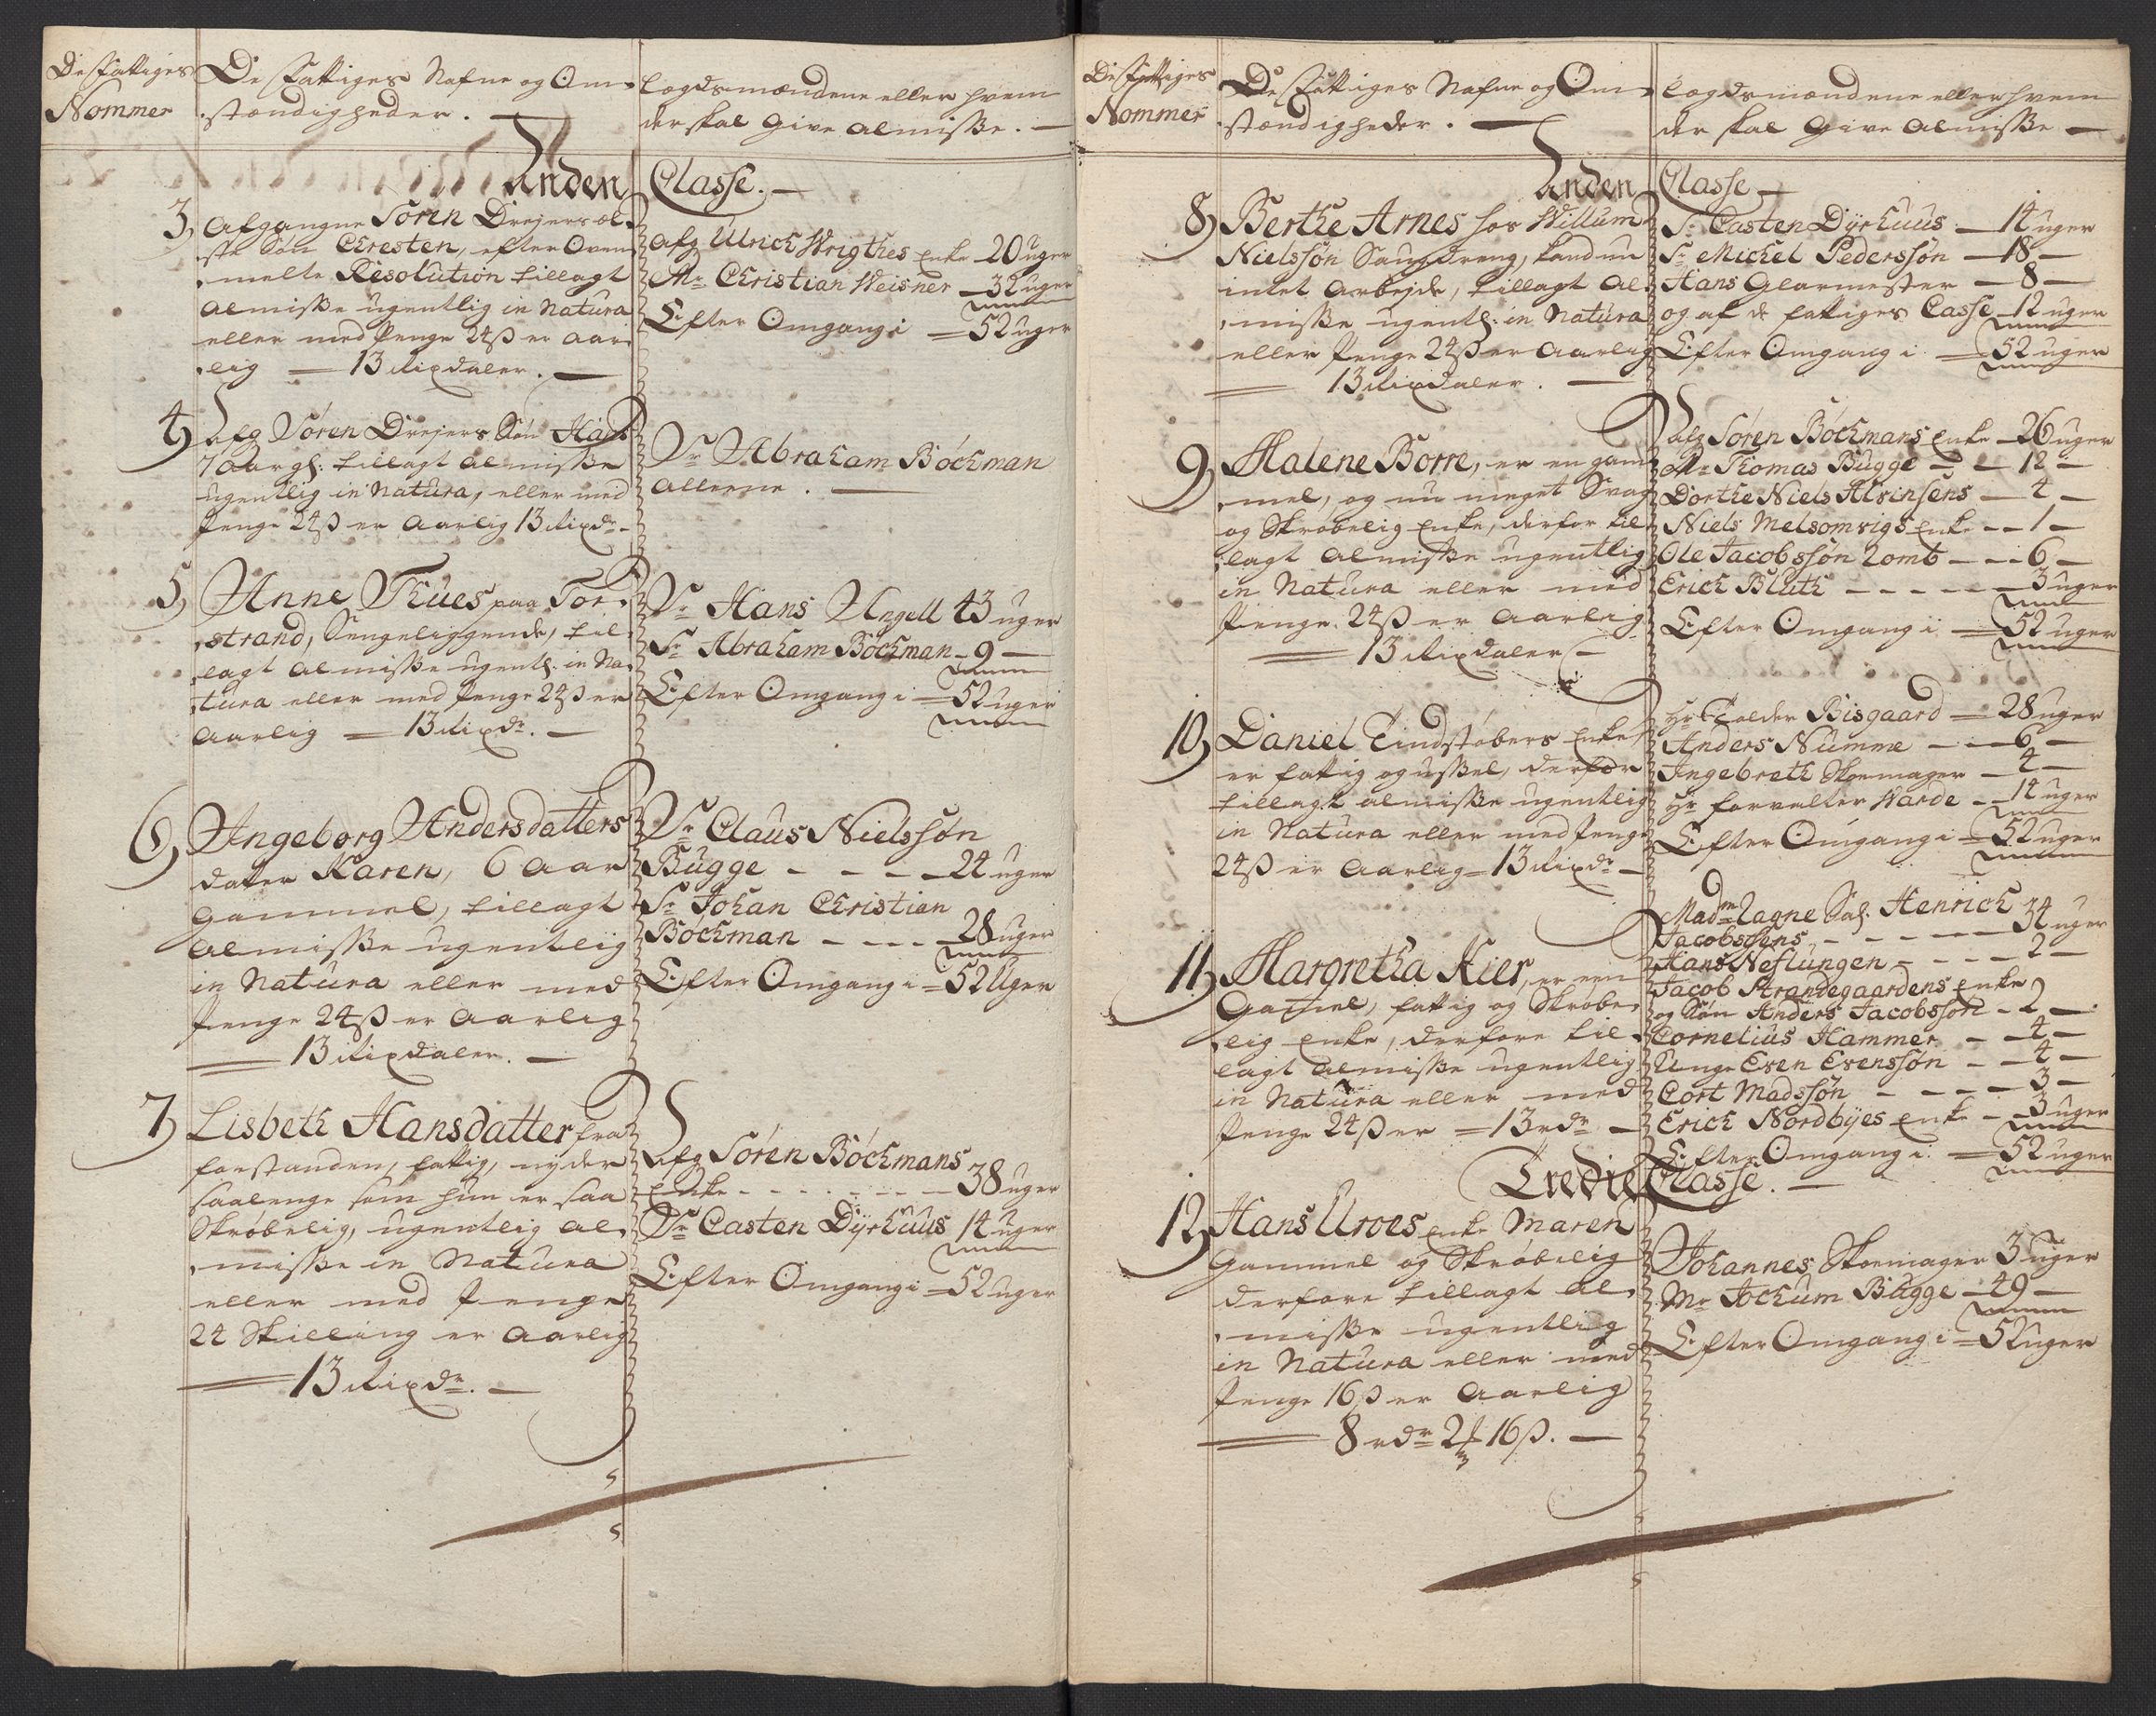 De fattiges
Nommer
De fattiges Nafne og Om-
stændigheder. —
Laegdsmændene eller hvem
der skal Give Almisse. —
Anden Classe. —
3, Afgangne Sören Drejers æl-
ste Søn Chresten, efter Oven-
melte Resolution tillagt
Almisse ugentlig in Natura
eller med Penge 24 ß er aar-
lig — 13 Rixdaler. —
Afg Ulrich Wrigthes Enke 20 uger
Mr Christian Weisner — 32 uger
Efter Omgang i = 52 uger
4, Afg Sören Drejers Søn Hans
7 Aar gl. tillagt Almisse
ugentlig in Natura, eller med
Penge 24 ß er Aarlig 13 Rixdr —
Sr Abraham Böckman
Alleene. —
5, Anne Thues paa Tor-
strand, Sengeliggende, til-
lagt Almisse ugentl. in Na-
tura eller med Penge 24 ß er
Aarlig = 13 Rixdr. —
Sr Hans Angell 43 uger
Sr Abraham Böckman - 9 —
Efter Omgang i = 52 uger
6, Ingeborg Andersdatters
datter Karen, 6 Aar
Gammel, tillagt
Almisse ugentlig
in Natura eller med
Penge 24 ß er Aarlig
— 13 Rixdaler. —
Sr Claus Nielssøn
Bugge - - - 24 uger
Sr Johan Christian
Böckman - - - - 28 uger
Efter Omgang i = 52 Uger
7, Lisbeth Hansdatter fra
forstanden, fattig, nyder
saalenge som hun er saa
Skrøbelig, ugentlig Al-
misse in Natura
eller med Penge
24 Skilling er Aarlig
— 13 Rixdr. —
Afg Sören Böckmans
Enke - - - - - 38 uger
Sr Casten Dÿrhuus 14 uger
Efter Omgang i = 52 uger
De fattiges
Nommer
De fattiges Nafne og Om-
stændigheder. —
Laegdsmændene eller hvem
der skal Give Almisse —
Anden Classe —
8, Berthe Arnes hos Willum
Nielssøn Saugdreng, kand nu
intet Arbejde, tillagt Al-
misse ugentl. in Natura
eller Penge 24 ß er Aarlig
= 13 Rixdaler. —
Sr Casten Dÿrhuus — 14 uger
Sr Michel Pederssøn — 18 —
Hans Glarmester — 8 —
og af de fattiges Casse 12 uger
Efter Omgang i = 52 uger
9, Malene Borre, er en gam-
mel, og nu meget Svag
og Skrøbelig Enke, derfor til-
lagt Almisse ugentlig
in Natura eller med
Penge 24 ß er Aarlig
= 13 Rixdaler —
Afg Sören Böckmans Enke — 26 uger
Mr Thomas Bugge — — 12 —
Dorthe Niels Alvinsens — 4 —
Niels Melsomvigs Enke - - 1 —
Ole Jacobssøn Lomb - - - 6 —
Erich Bluth - - - - - 3 uger
Efter Omgang i = 52 uger
10, Daniel Tindstøbers Enke,
er fattig og ussel, derfor
tillagt Almisse ugentlig
in Natura eller med Penge
24 ß er Aarlig = 13 Rixdr —
Hr Bisgaard — 28 uger
Anders Numme - - - 6 —
Ingebreth Skomager — 4 —
Hr forvalter Warde - - 14 uger
Efter Omgang i = 52 uger
11, Margretha Kier, er een
Gamel, fattig og Skrøbe-
lig Enke, derfore til-
lagt Almisse ugentlig
in Natura eller med
Penge 24 ß er = 13 rdr —
Madm Lagne Sal. Henrich
Jacobssens - - - - - 34 uger
Hans Neslungen - - - - 2 —
Jacob Strandegaardens Enke
og Søn Anders Jacobssøn - 2 —
Cornelius Hammer - - 4 —
Unge Even Evenssøn - - 4 —
Cort Madssøn - - - - 3 —
Erich Nordbÿes Enke - 3 uger
Efter Omgang i = 52 uger
Tredie Classe. —
12, Hans Uroes Enke Maren
Gammel og Skrøbelig
derfore tillagt Al-
misse ugentlig
in Natura eller med
Penge 16 ß er Aarlig
= 8 rdr 2 16 ß. —
Johannes Skomager 3 uger
Mr Jochum Bugge — 49 —
Efter Omgang i = 52 uger